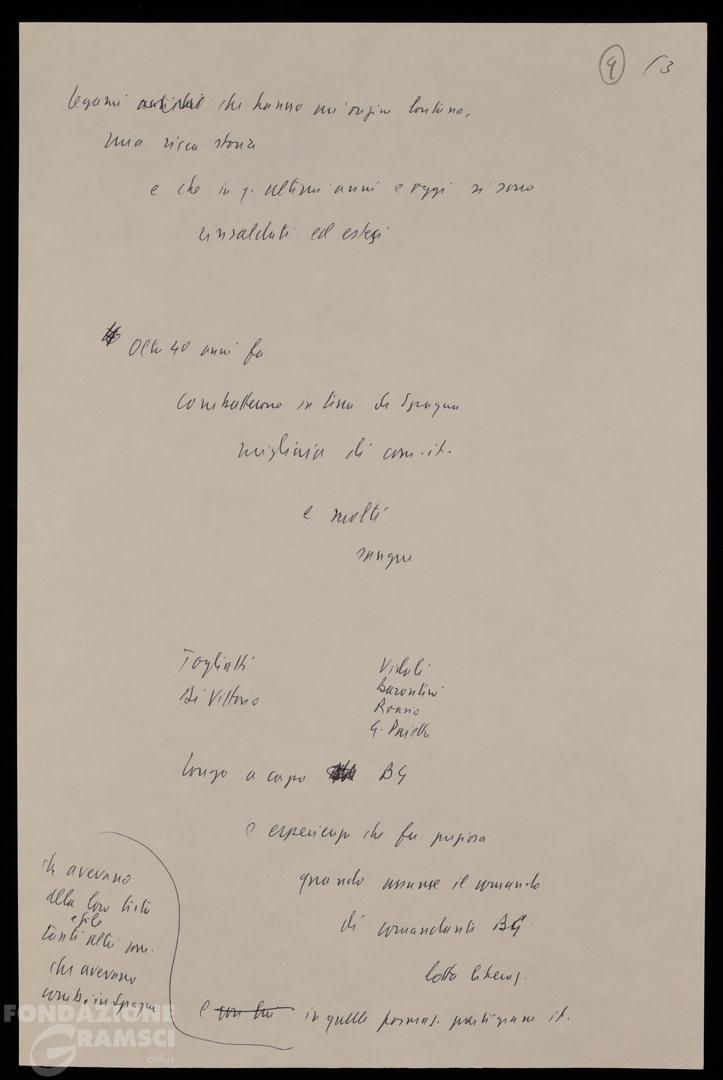 9 / 3
legami antichi che hanno un'origine lontana,
una ricca storia
e che in q. ultimi anni e oggi si sono
rinsaldati ed estesi
Oltre 40 anni fa
combatterono in terra di Spagna
migliaia di com. it.
e molti
sangue
Togliatti
Di Vittorio
Vidali
Barontini
Roasio
G. Pajetta
Longo a capo BG
e esperienza che fu preziosa
quando assunse il comando
di comandante BG
lotta liberaz.
e con lui in quelle formaz. partigiane it.
che avevano
alla loro testa
e file
tanti altri com.
che avevano
comb. in Spagna
FONDAZIONE
GRAMSCI
onlus